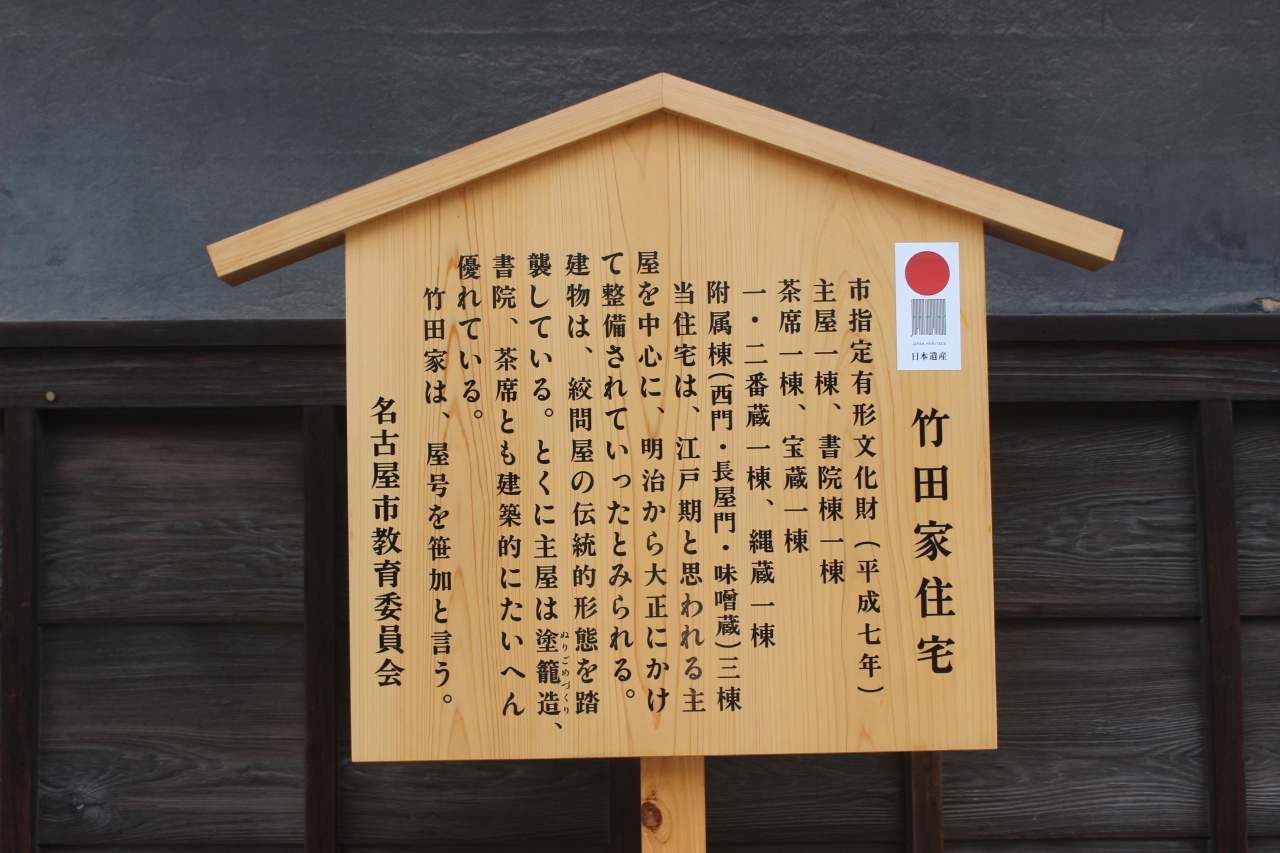 竹田家住宅
JAPAN HERITAGE
日本遺産
市指定有形文化財（平成七年）
主屋一棟、書院棟一棟
茶席一棟、宝蔵一棟
一・二番蔵一棟、縄蔵一棟
附属棟(西門・長屋門・味噌蔵)三棟
当住宅は、江戸期と思われる主
屋を中心に、明治から大正にかけ
て整備されていったとみられる。
建物は、絞問屋の伝統的形態を踏
襲している。とくに主屋は塗籠造、
ぬりごめづくり
書院、茶席とも建築的にたいへん
優れている。
竹田家は、屋号を笹加と言う。
名古屋市教育委員会